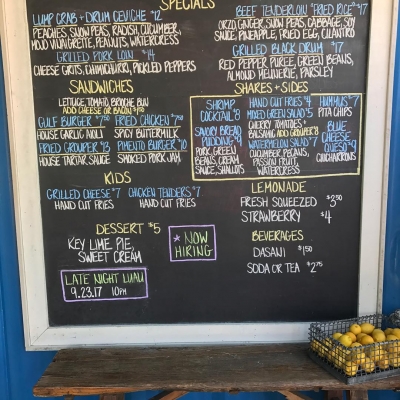 SPECIALS
LUMP CRAB + DRUM CEVICHE $12
PEACHES, SNOW PEAS, RADISH, CUCUMBER,
MOJO VINAIGRETTE, PEANUTS, WATERCRESS
GRILLED PORK LOIN $14
CHEESE GRITS, CHIMICHURRI, PICKLED PEPPERS
BEEF TENDERLOIN "FRIED RICE" $17
ORZO, GINGER, SNOW PEAS, CABBAGE, SOY
SAUCE, PINEAPPLE, FRIED EGG, CILANTRO
GRILLED BLACK DRUM $17
RED PEPPER PUREE, GREEN BEANS,
ALMOND MEUNIERE, PARSLEY
SANDWICHES
LETTUCE, TOMATO, BRIOCHE BUN
ADD CHEESE OR BACON
GULF BURGER $7.50
HOUSE GARLIC AIOLI
FRIED CHICKEN
SPICY BUTTERMILK
FRIED GROUPER $13
HOUSE TARTAR SAUCE
PIMENTO BURGER $10
SMOKED PORK JAM
SHARES + SIDES
SHRIMP
COCKTAIL $8
SAVORY BREAD
PUDDING $9
PORK, GREEN
BEANS, CREAM
SAUCE, SHALLOTS
HAND CUT FRIES $4
MIXED GREEN SALAD $5
CHERRY TOMATOES +
BALSAMIC ADD GROUPER $8
WATERMELON SALAD $7
CUCUMBER, PECANS,
PASSION FRUIT,
WATERCRESS
HUMMUS $7
PITA CHIPS
BLUE
CHEESE
QUESO $9
CHICHARRONS
KIDS
GRILLED CHEESE $7
HAND CUT FRIES
CHICKEN TENDERS $7
HAND CUT FRIES
LEMONADE
FRESH SQUEEZED $3.50
STRAWBERRY $4
DESSERT $5
KEY LIME PIE,
SWEET CREAM
* NOW
HIRING
BEVERAGES
DASANI $1.50
SODA OR TEA $2.75
LATE NIGHT LUAU
9.23.17 10PM